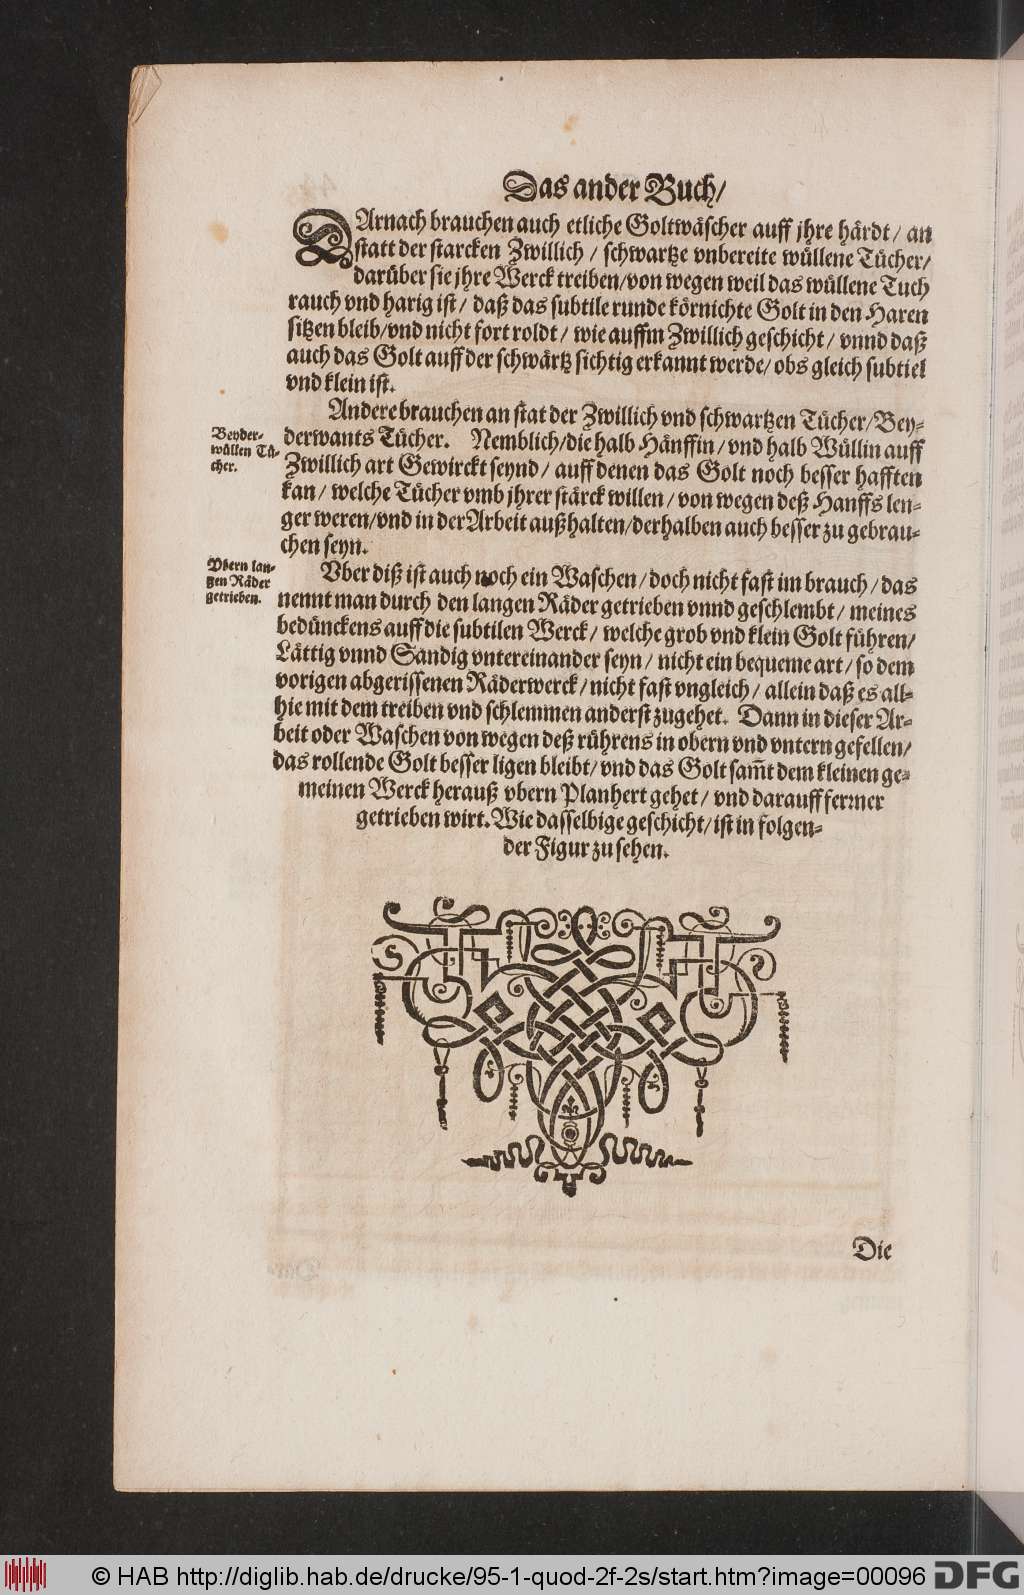 Das ander Buch/
DArnach brauchen auch etliche Goltwäscher auff jhre härdt/ an
statt der starcken Zwillich / schwartze vnbereite wüllene Tücher/
darüber sie jhre Werck treiben/von wegen weil das wüllene Tuch
rauch vnd harig ist/ daß das subtile runde körnichte Golt in den Haren
sitzen bleib/vnd nicht fort roldt/ wie auffm Zwillich geschicht/ vnnd daß
auch das Golt auff der schwärtz sichtig erkannt werde/ obs gleich subtiel
vnd klein ist.
Andere brauchen an stat der Zwillich vnd schwartzen Tücher/Bey-
Beyder-
wüllen Tü-
cher.
derwants Tücher. Nemblich/die halb Hänffin/ vnd halb Wüllin auff
Zwillich art Gewirckt seynd/ auff denen das Golt noch besser hafften
kan/ welche Tücher vmb jhrer stärck willen/ von wegen deß Hanffs len-
ger weren/vnd in der Arbeit außhalten/derhalben auch besser zu gebrau-
chen seyn.
Vbern lan-
gen Räder
getrieben.
Vber diß ist auch noch ein Waschen/ doch nicht fast im brauch/ das
nennt man durch den langen Räder getrieben vnnd geschlembt/ meines
bedünckens auff die subtilen Werck/ welche grob vnd klein Golt führen/
Lättig vnnd Sandig vntereinander seyn/ nicht ein bequeme art/ so dem
vorigen abgerissenen Räderwerck/ nicht fast vngleich/ allein daß es all-
hie mit dem treiben vnd schlemmen anderst zugehet. Dann in dieser Ar-
beit oder Waschen von wegen deß rührens in obern vnd vntern gefellen/
das rollende Golt besser ligen bleibt/ vnd das Golt sam̃t dem kleinen ge-
meinen Werck herauß vbern Planhert gehet/ vnd darauff ferrner
getrieben wirt. Wie dasselbige geschicht/ ist in folgen-
der Figur zu sehen.
Die
© HAB http://diglib.hab.de/drucke/95-1-quod-2f-2s/start.htm?image=00096
DFG